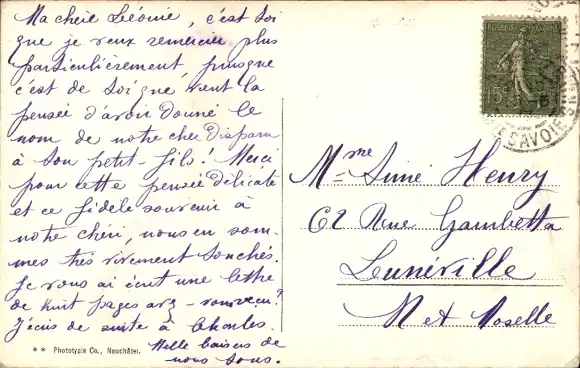 Ma chère Léonie, c'est toi
que je veux remercier plus
particulièrement, puisque
c'est de toi que vient la
pensée d'avoir donné le
nom de notre cher Disparu
à ton petit-fils! Merci
pour cette pensée délicate
et ce fidèle souvenir à
notre chéri, nous en som-
mes très vivement touchés.
Je vous ai écrit une lettre
de huit pages
J'écris de suite à Charles.
Mille baisers de
nous tous.
** Phototypie Co., Neuchâtel.
15c
SAVOIE
Mme Aimé Henry
62 Rue Gambetta
Lunéville
M et Moselle